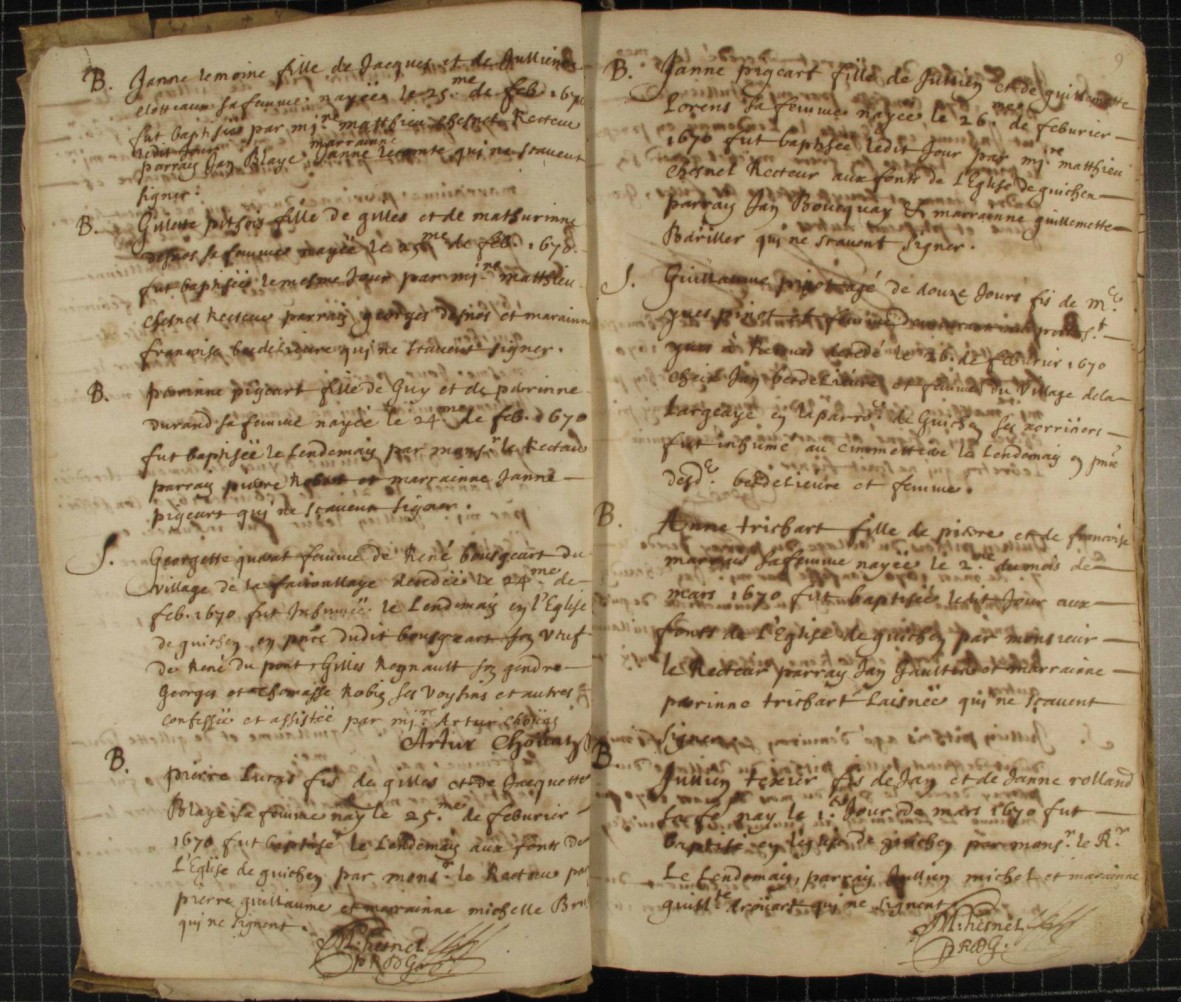 B. Janne lemoine fille de Jacques et de Jullienne
sa femme nayée le 25.me de feb. 1670
fut baptisée par mi.re matthieu chesnel Recteur
ledit Jour marrainne
parrain Jan Blaye Janne lecomte qui ne scavent
signer:
B. Gillette pitsois fille de gilles et de mathurinne
desnos sa femme nayée le 25me de feb. 1670.
fut baptisée le mesme Jour par mi.re matthieu
chesnel Recteur parrain georges desnos et marainne
francoise berdelieure qui ne scavent signer.
B. perrinne pigeart fille de Guy et de perrinne
durand sa femme nayée le 24me de feb. 1670
fut baptisée le Lendemain par mons.r le Recteur
parrain pierre Robert et marrainne Janne
pigeart qui ne scavent signer.
S. Georgette femme de René bourgeart du
village de la decedée le 24.me de
feb. 1670 fut Inhumée le Lendemain en l'Eglise
de guichen en pnce dudit bourgeart
de René du pont Gilles Reynault son gendre
Georges et Thomasse Robin ses Voysins et autres
confessée et assistée par mi.re Artur
Artur
B. pierre Lucas fis de gilles et de Jacquette
Blaye sa femme nay le 25.me de feburier
1670 fut baptisé le Lendemain aux fonts de
L'Eglise de guichen par mons.r le Recteur par
pierre guillaume et marrainne michelle
qui ne signent.
M. Chesnel
PRDG.
9
B. Janne pigeart fille de Jullien et de guillemette
Lorens sa femme nayée le 26.me de feburier
1670 fut baptisée ledit Jour par mi.re matthieu
chesnel Recteur aux fonts de L'Eglise de guichen
parrain Jan Boucquay & marrainne guillemette
Bariller qui ne scavent signer.
S. Guillaume pinot agé de douze Jours fis de m.e
yves pinot et
a Rennes decedé le 26. de feburier 1670
cheix Jan berdelieure et femme du village de la
Largeaye en la parro. de Guichen ses
fut inhumé au cimmettiere le Lendemain en pnce
desd. berdelieure et femme.
B. Anne trichart fille de pierre et de francoise
sa femme nayée le 2.me du mois de
mars 1670 fut baptisée ledit Jour aux
fonts de L'Eglise de guichen par monsieur
le Recteur parrain Jan Gaultier et marrainne
perinne trichart Laisnée qui ne scavent
signer.
B. Jullien texier fis de Jan et de Janne rolland
sa fe nay le 1.er Jour de mars 1670 fut
baptisé en l'eglise de guichen par mons.r le R.r
Le Lendemain, parrain Jullien michel et marainne
guill.te drouart qui ne signent
M. Chesnel
PRDG.